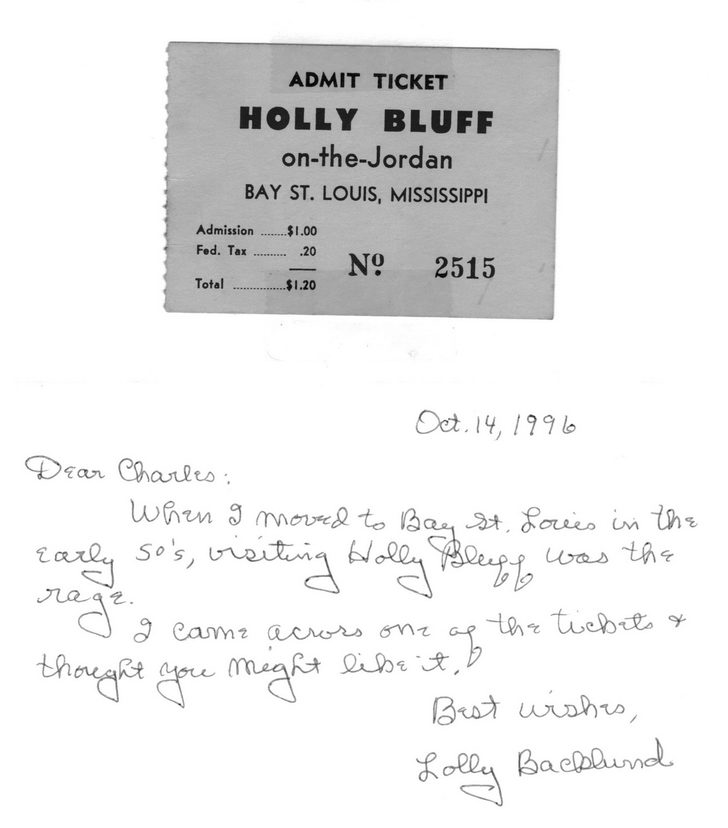 ADMIT TICKET
HOLLY BLUFF
on-the-Jordan
BAY ST. LOUIS, MISSISSIPPI
Admission .......$1.00
Fed. Tax .......... .20
Total ................$1.20
Nº 2515
Oct. 14, 1996
Dear Charles:
When I moved to Bay St. Louis in the
early 50's, visiting Holly Bluff was the
rage.
I came across one of the tickets &
thought you might like it.
Best wishes,
Lolly Backlund